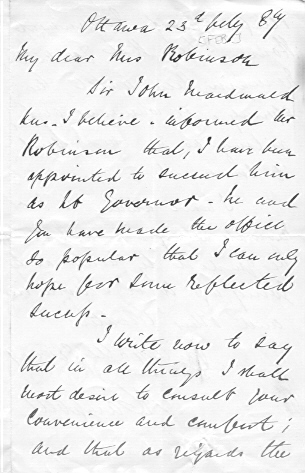 Ottawa 23d feby 87
My dear Mrs Robinson
Sir John Macdonald
has - I believe - informed Mr
Robinson that, I have been
appointed to succeed him
as Lt Governor - he and
you have made the office
so popular that I can only
hope for some reflected
success -
I write now to say
that in all things I shall
most desire to consult your
convenience and comfort;
and that as regards the